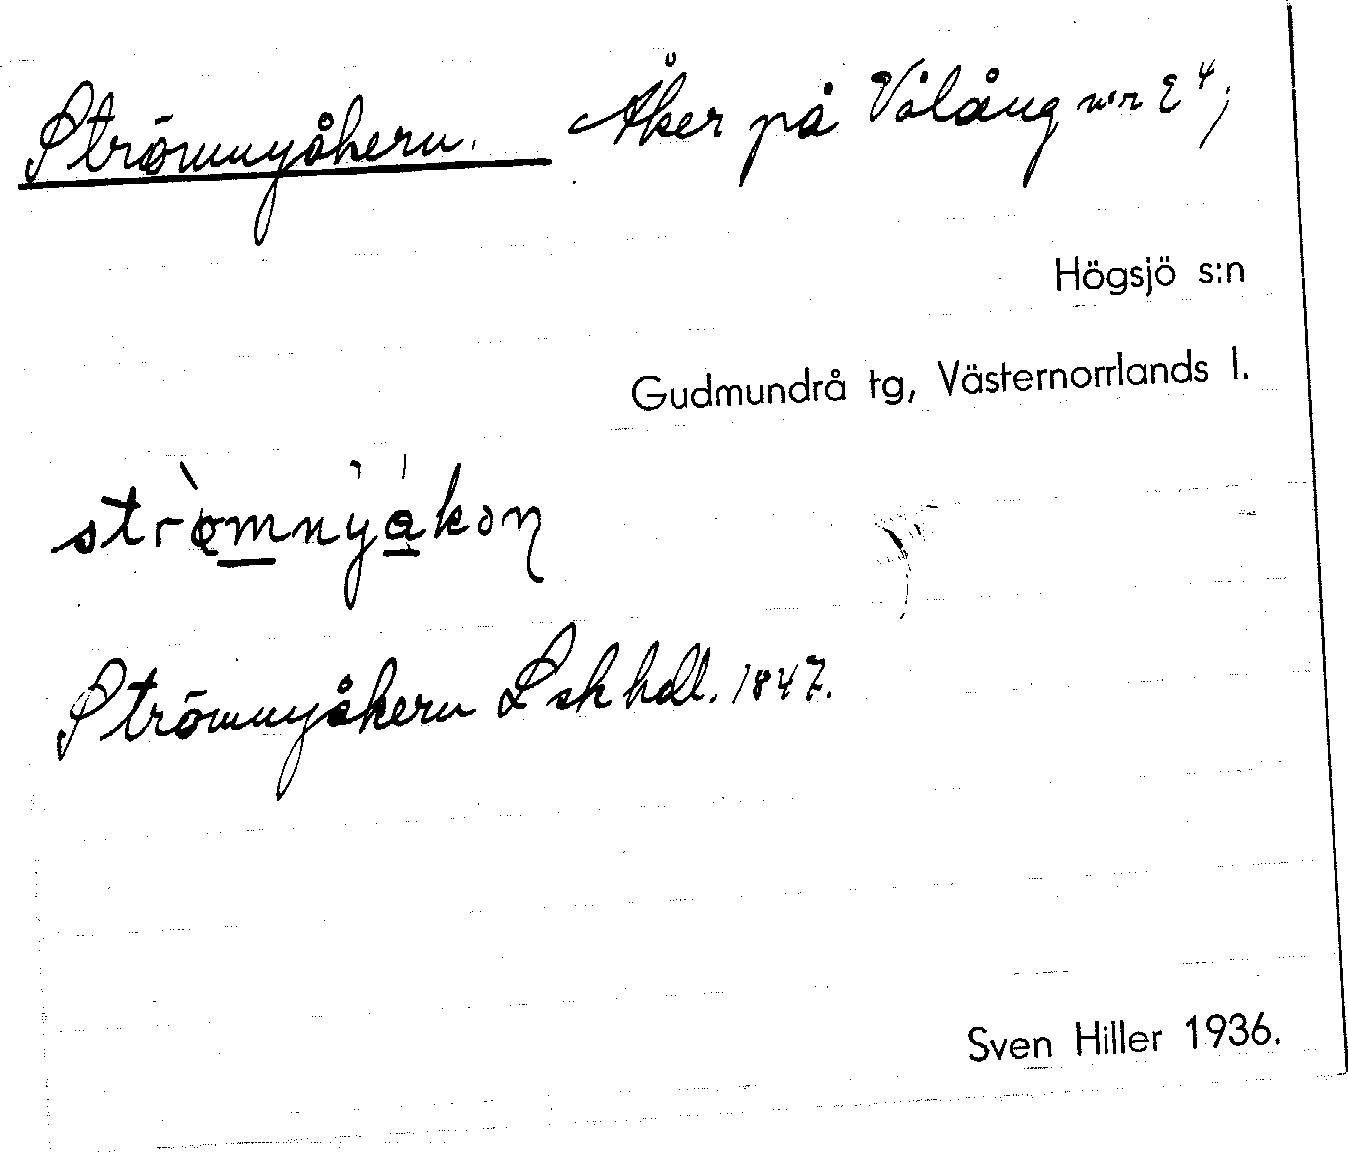 Strömnyåkern. Åker på Vålång nr 2⁴;
Högsjö s:n
Gudmundrå tg, Västernorrlands l.
strömnyåkəṇ
Strömnyåkern L sk hdl. 1847.
Sven Hiller 1936.